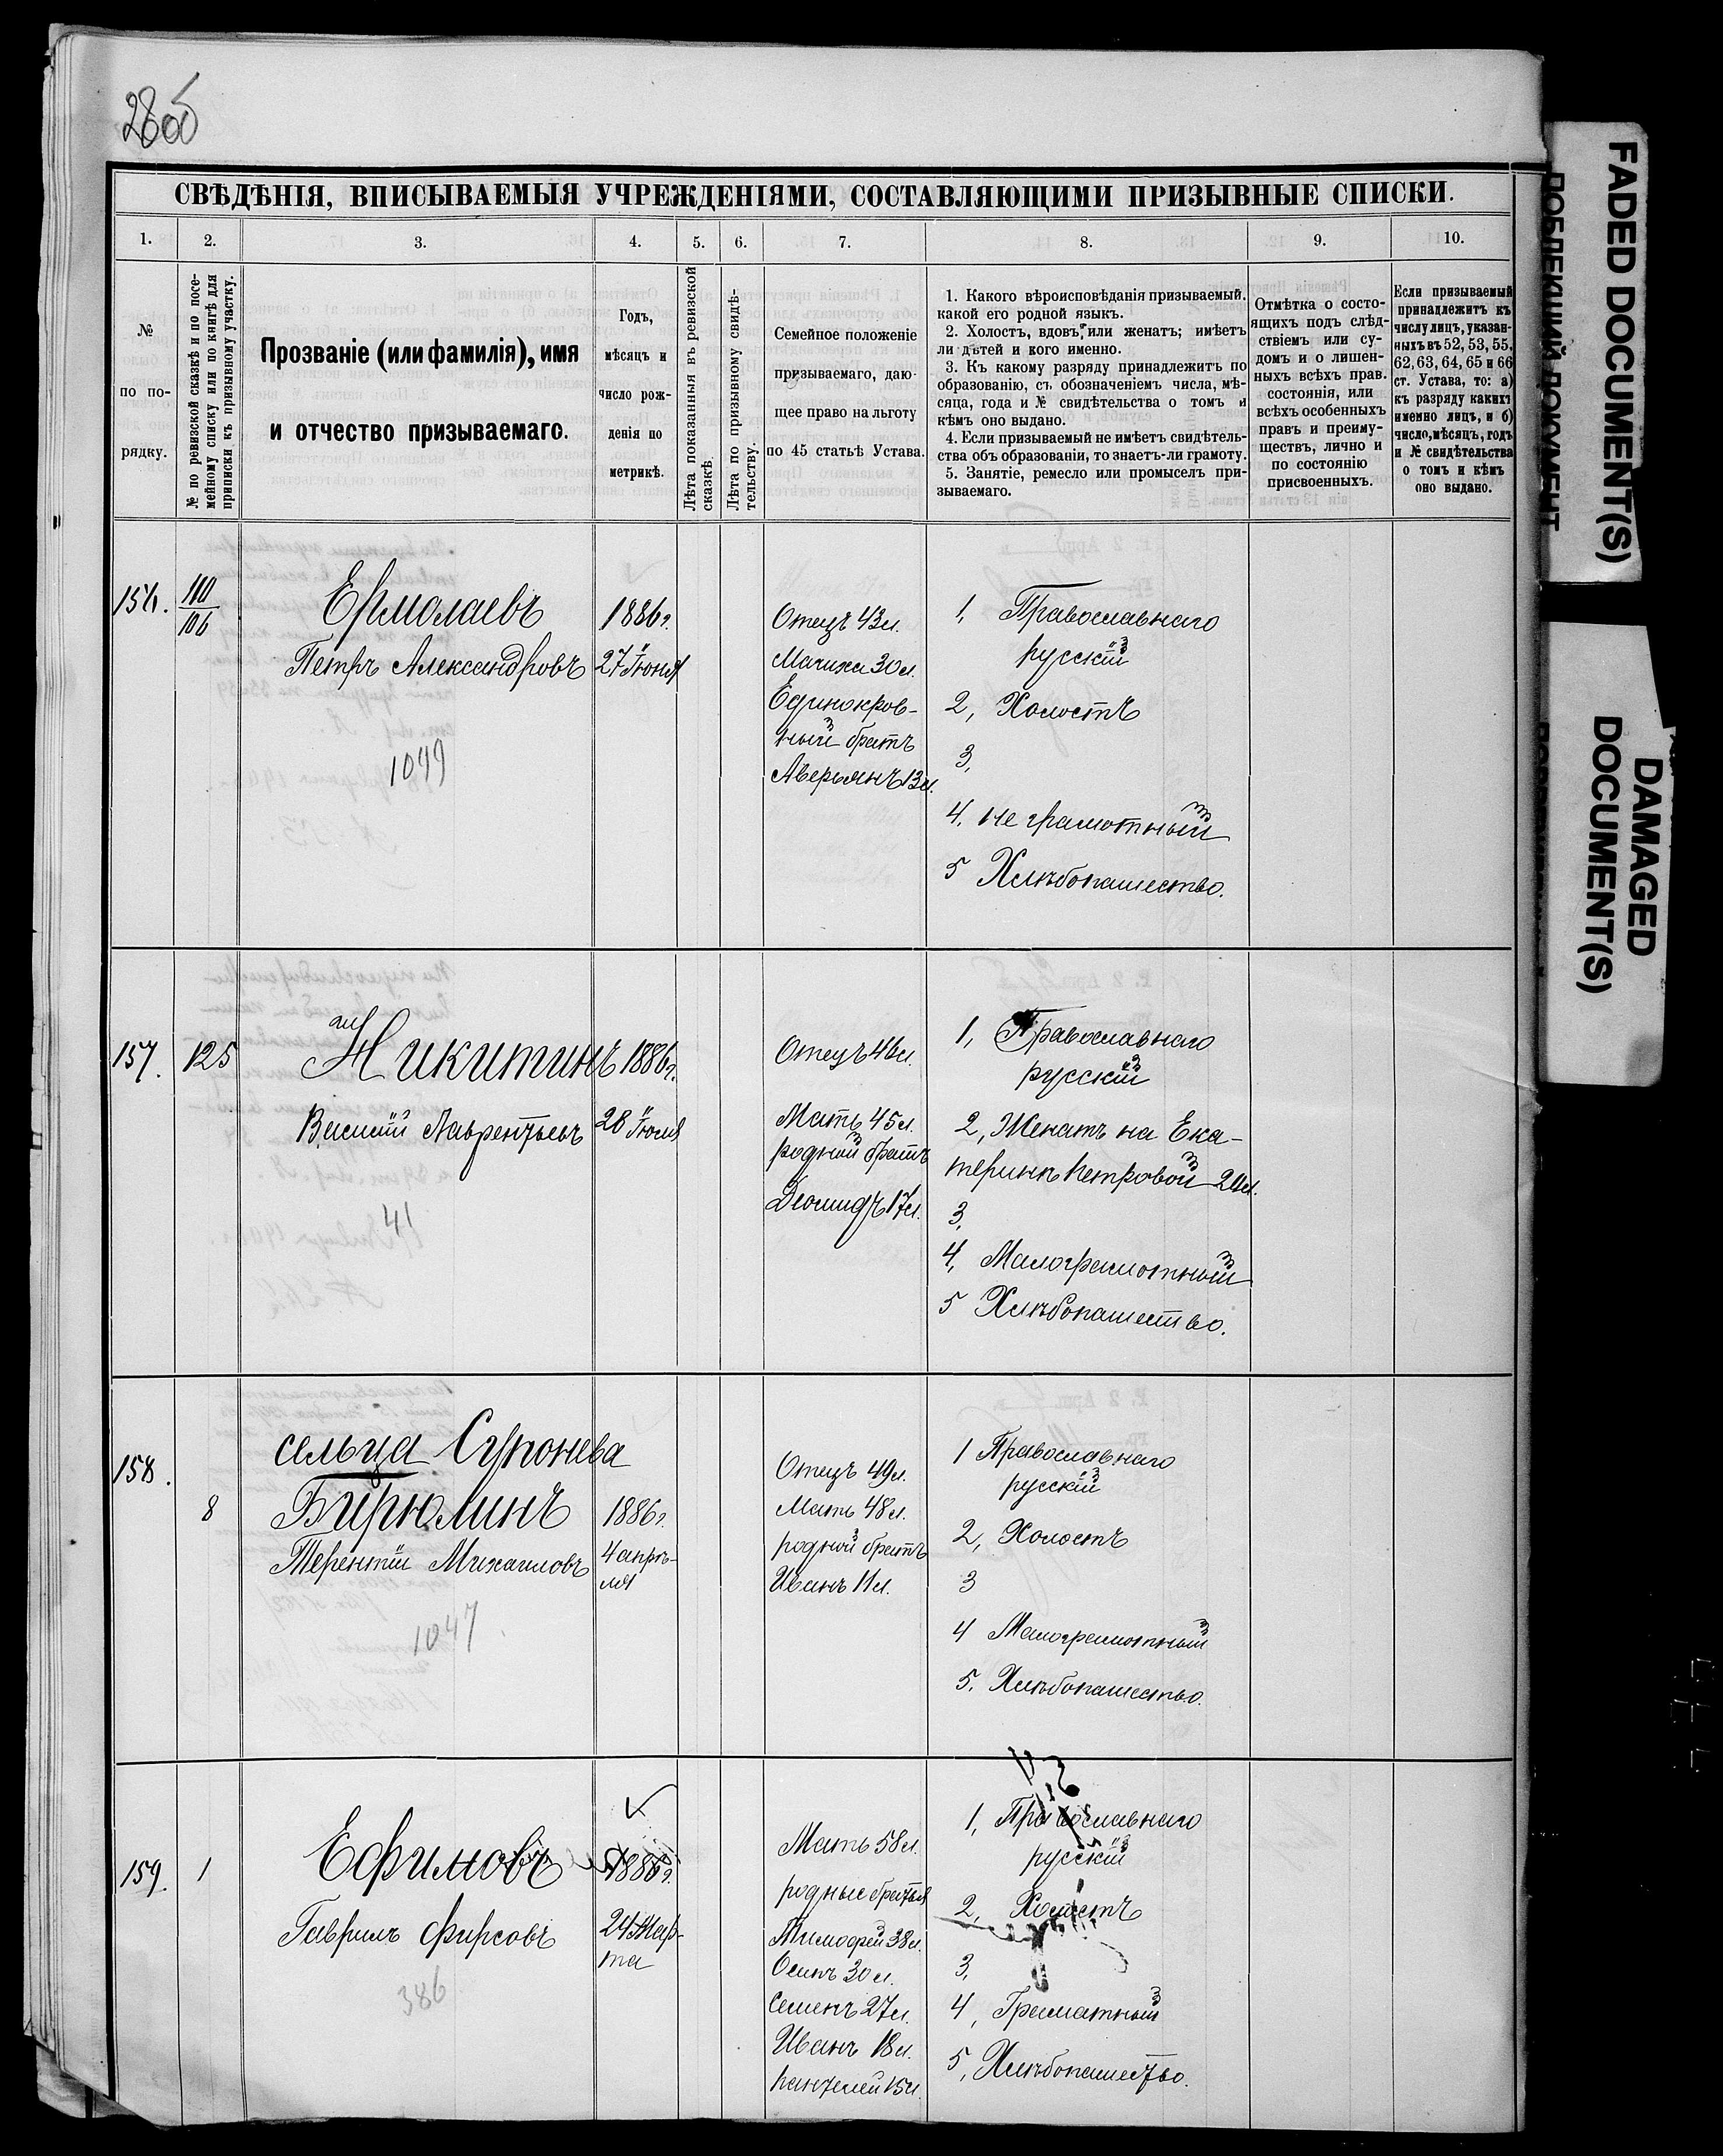 286об
СВѢДѢНІЯ, ВПИСЫВАЕМЫЯ УЧРЕЖДЕНІЯМИ, СОСТАВЛЯЮЩИМИ ПРИЗЫВНЫЕ СПИСКИ.
1. 2. 3. 4. 5. 6. 7. 8. 9. 10.
№
по по-
рядку.
№ по ревизской сказкѣ и по посе-
мейному списку или по книгѣ для
приписки къ призывному участку.
Прозваніе (или фамилія), имя
и отчество призываемаго.
Годъ,
мѣсяцъ и
число рож-
денія по
метрикѣ.
Лѣта показанныя въ ревизской
сказкѣ.
Лѣта по призывному свидѣ-
тельству.
Семейное положеніе
призываемаго, даю-
щее право на льготу
по 45 статьѣ Устава.
1. Какого вѣроисповѣданія призываемый.
какой его родной языкъ.
2. Холостъ, вдовъ, или женатъ; имѣетъ
ли дѣтей и кого именно.
3. Къ какому разряду принадлежитъ по
образованію, съ обозначеніемъ числа, мѣ-
сяца, года и № свидѣтельства о томъ и
кѣмъ оно выдано.
4. Если призываемый не имѣетъ свидѣтель-
ства объ образованіи, то знаетъ-ли грамоту.
5. Занятіе, ремесло или промыселъ при-
зываемаго.
Отмѣтка о состо-
ящихъ подъ слѣд-
ствіемъ или су-
домъ и о лишен-
ныхъ всѣхъ прав.
состоянія, или
всѣхъ особенныхъ
правъ и преиму-
ществъ, лично и
по состоянію
присвоенныхъ.
Если призываемый
принадлежитъ къ
числу лицъ, указан-
ныхъ въ 52, 53, 55,
62, 63, 64, 65 и 66
ст. Устава, то: а)
къ разряду какихъ
именно лицъ, и б)
число, мѣсяцъ, годъ
и № свидѣтельства
о томъ и кѣмъ
оно выдано.
156.
110
106
Ермолаевъ
Петръ Александровъ
1049
1886 г.
27 Іюня
Отецъ 43 л.
Мачиха 30 л.
Единокров-
ный братъ
Аверьянъ 13 л.
1, Православнаго
русскій
2, Холостъ
3,
4, не грамотный
5 Хлѣбопашество.
157.
125
Никитинъ
Василій Лаврентьевъ
41
1886 г.
28 Іюля
Отецъ 46 л.
Мать 45 л.
родной братъ
Діомидъ 17 л.
1, Православнаго
русскій
2, Женатъ на Ека-
теринѣ Петровой 20 л.
3,
4, Малограмотный
5 Хлѣбопашество.
158.
8
сельца
Бирюлинъ
Терентій Михаиловъ
1047
1886 г.
4 апрѣ-
ля
Отецъ 49 л.
Мать 48 л.
родной братъ
Иванъ 11 л.
1 Православнаго
русскій
2, Холостъ
3
4 Малограмотный
5, Хлѣбопашество.
159.
1
Ефимовъ
Гаврилъ Фирсовъ
386
1886 г.
24 Мар-
та
Мать 58 л.
родные братья
Тимофей 38 л.
Осипъ 30 л.
Семенъ 27 л.
Иванъ 18 л.
Пантелей 15 л.
1, Православнаго
русскій
2, Холостъ
3,
4, Граматный
5, Хлѣбопашество.
FADED DOCUMENT(S)
DAMAGED
DOCUMENT(S)